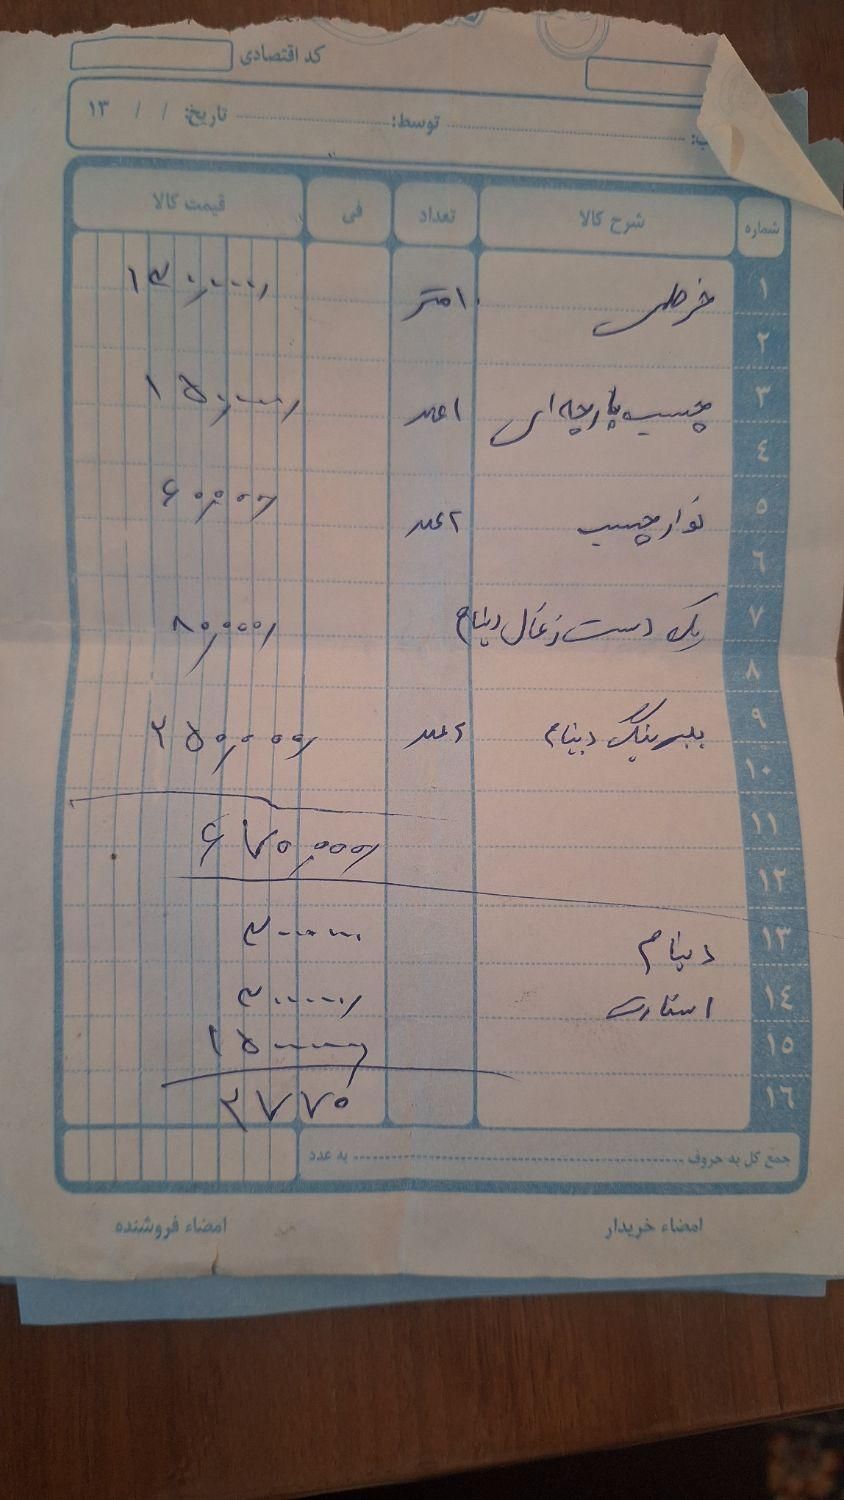 کد اقتصادی
توسط: تاریخ: / / ۱۳
شماره شرح کالا تعداد فی قیمت کالا
۱ خرطومی ۱۰متر
۲
۳ چسب پارچه ای ۱عدد ۱۵۰,۰۰۰
۴
۵ نوار چسب ۲عدد ۶۰,۰۰۰
۶
۷ یک دست زغال دینام ۸۰,۰۰۰
۸
۹ بلبرینگ دینام ۲عدد ۲۵۰,۰۰۰
۱۰
۱۱ ۶۷۰,۰۰۰
۱۲
۱۳ دینام
۱۴ استارت
۱۵
۱۶
جمع کل به حروف به عدد
امضاء خریدار امضاء فروشنده